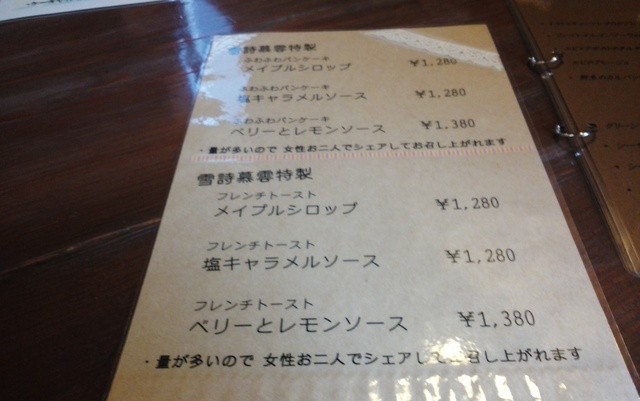 雪詩慕雲特製
ふわふわパンケーキ
メイプルシロップ ¥1,280
ふわふわパンケーキ
塩キャラメルソース ¥1,280
ふわふわパンケーキ
ベリーとレモンソース ¥1,380
・量が多いので 女性お二人でシェアしてお召し上がれます
雪詩慕雲特製
フレンチトースト
メイプルシロップ ¥1,280
フレンチトースト
塩キャラメルソース ¥1,280
フレンチトースト
ベリーとレモンソース ¥1,380
・量が多いので 女性お二人でシェアしてお召し上がれます